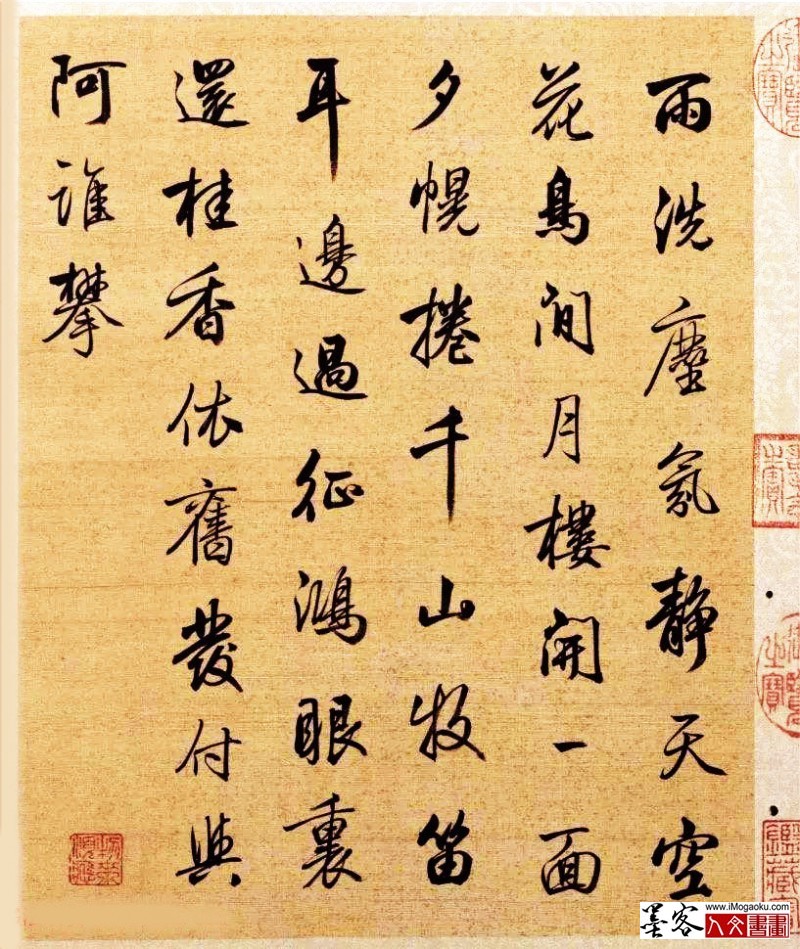 雨洗塵氛靜天空
花鳥間月樓開一面
夕幌捲千山牧笛
耳邊過征鴻眼裏
還桂香依舊發付與
阿誰攀
www.iMogaoku.com
墨客
人文書畫